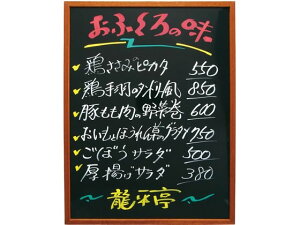 おふくろの味
鶏ささみピカタ 550
鶏手羽のタンドリ風 850
豚もも肉の野菜巻 600
おいもとほうれん草のグラタン 750
ごぼうサラダ 500
厚揚げサラダ 380
龍平亭